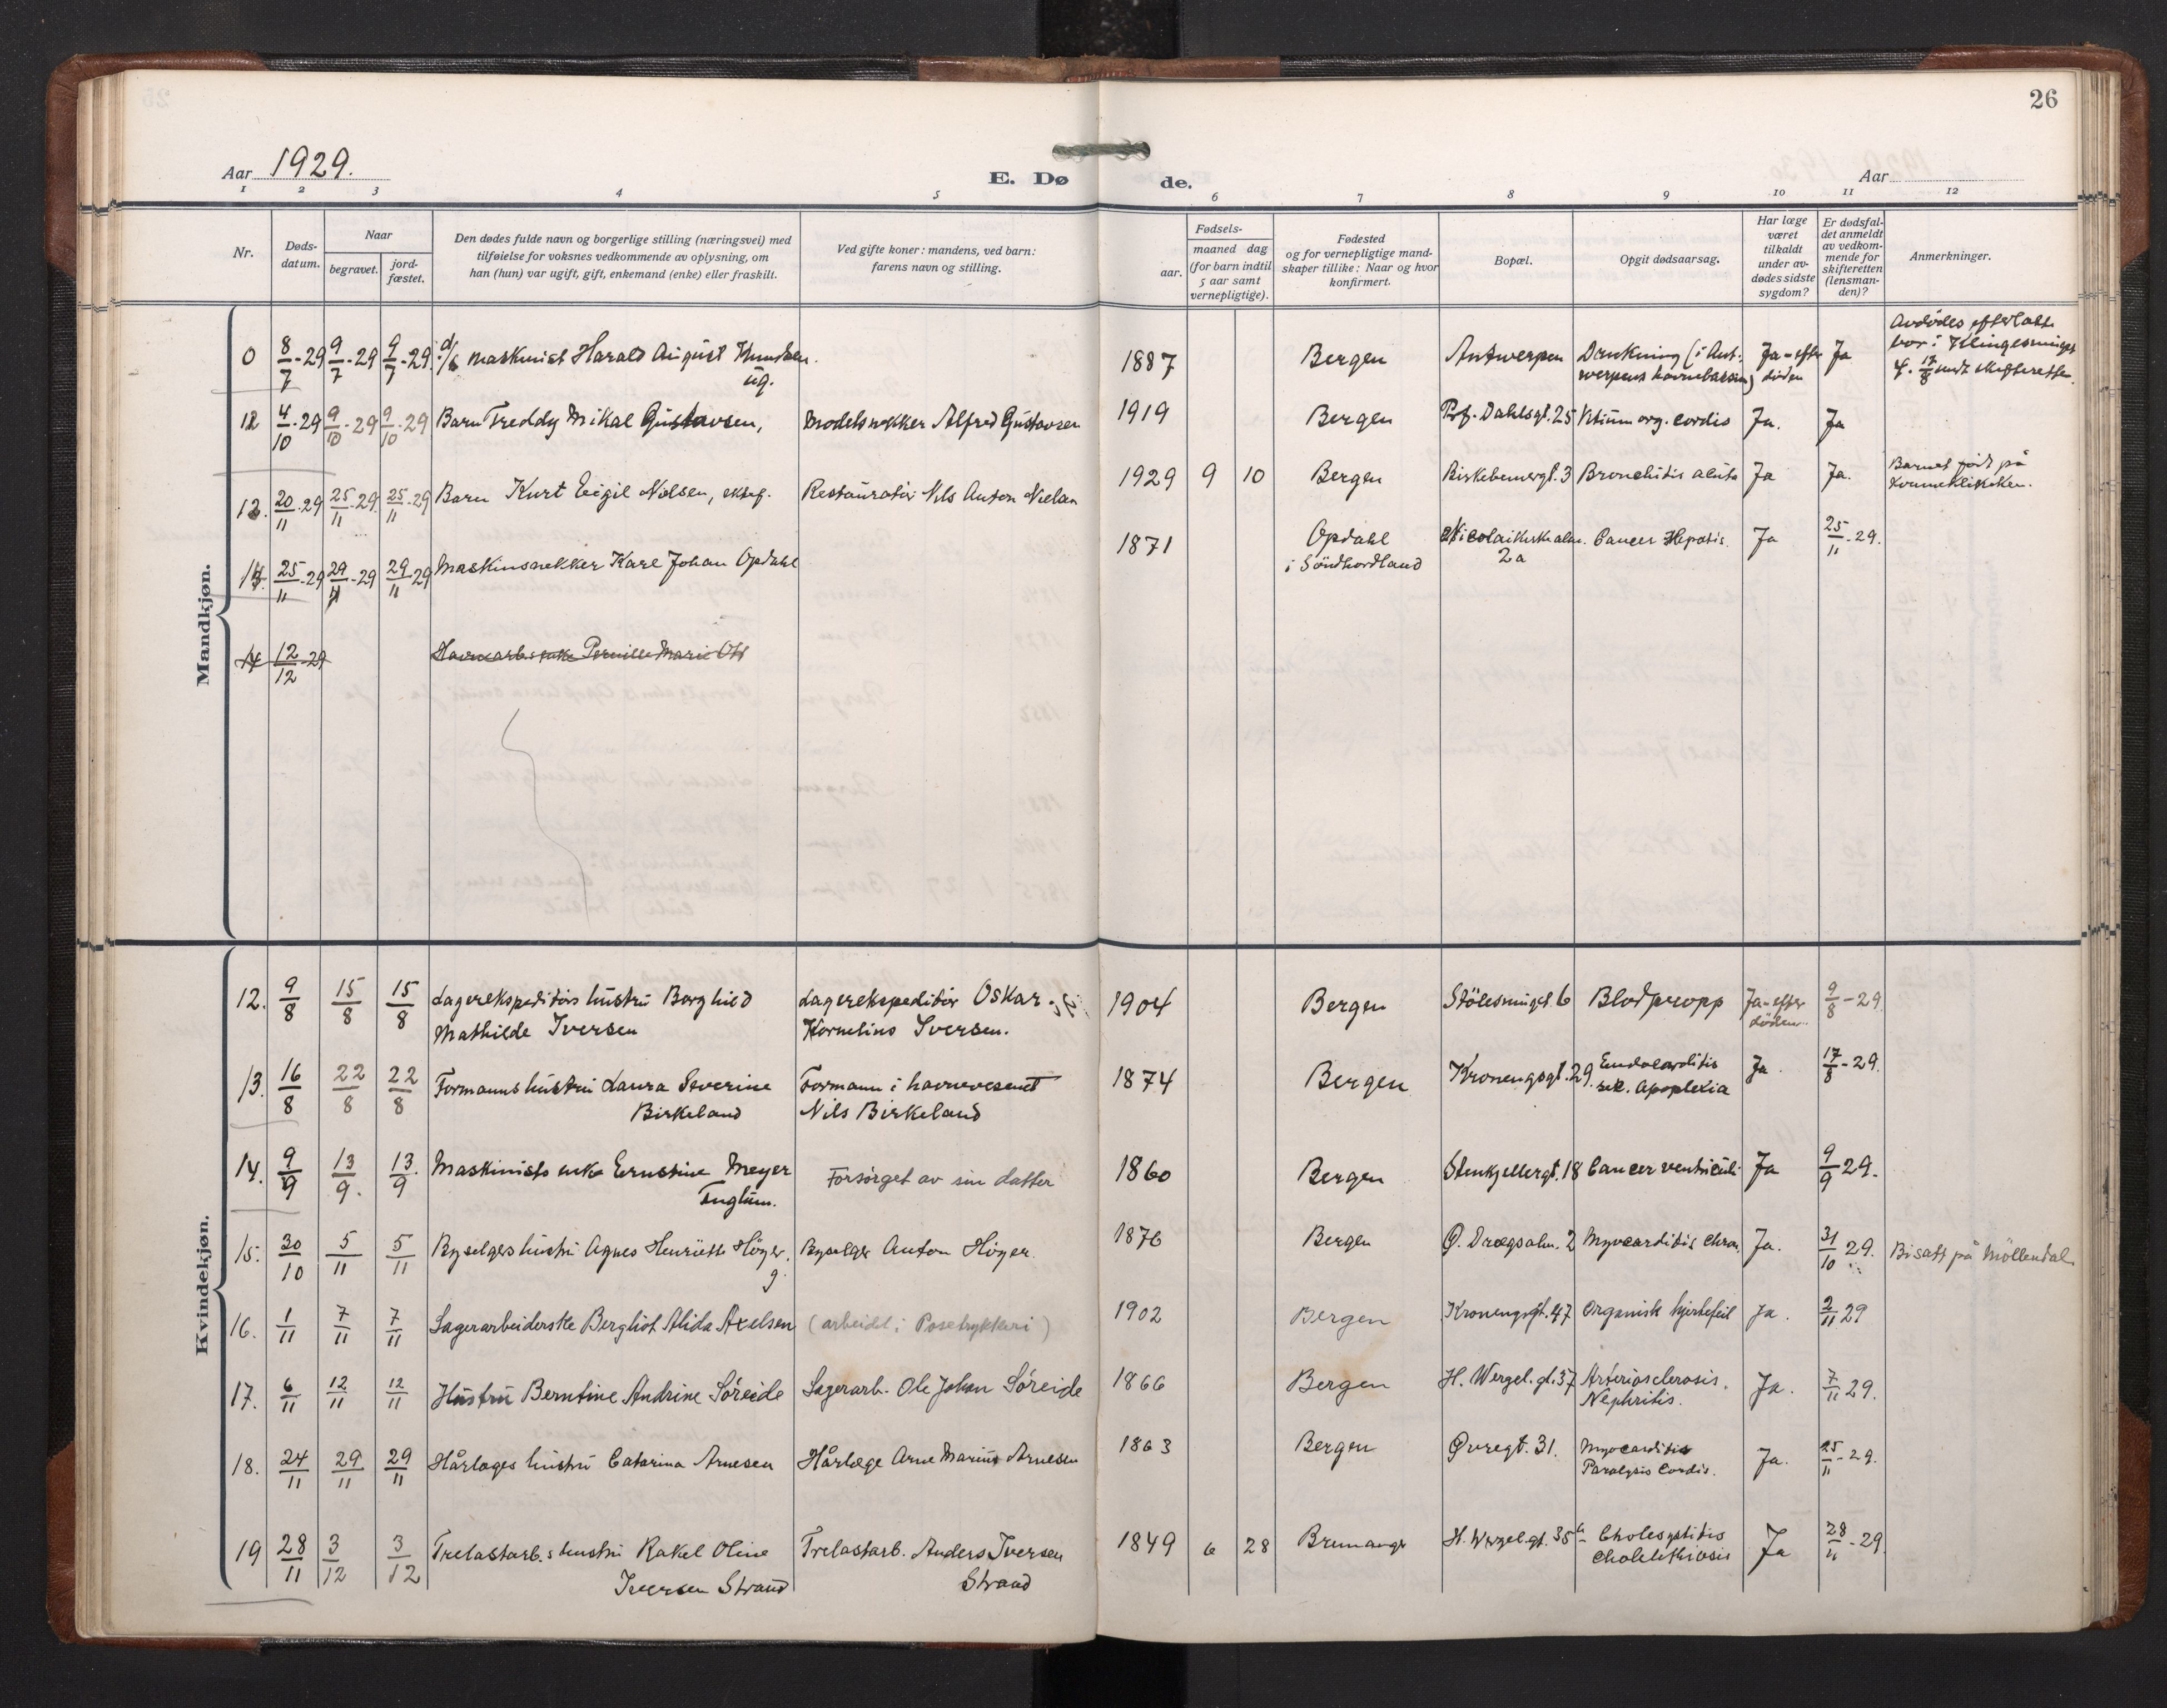 26
Aar 1929.
E. Dø de.
Aar
1 2 3 4 5 6 7 8 9 10 11 12
Nr.
Døds-
datum.
Naar
begravet.
jord-
fæstet.
Den dødes fulde navn og borgerlige stilling (næringsvei) med
tilføielse for voksnes vedkommende av oplysning, om
han (hun) var ugift, gift, enkemand (enke) eller fraskilt.
Ved gifte koner: mandens, ved barn:
farens navn og stilling.
Fødsels-
aar.
maaned dag
(for barn indtil
5 aar samt
vernepligtige).
Fødested
og for vernepligtige mand-
skaper tillike: Naar og hvor
konfirmert.
Bopæl.
Opgit dødsaarsag.
Har læge
været
tilkaldt
under av-
dødes sidste
sygdom?
Er dødsfal-
det anmeldt
av vedkom-
mende for
skifteretten
(lensman-
den)?
Anmerkninger.
Mandkjøn.
0 8/7-29 9/7-29 9/7-29 maskinist Harald August Knudsen. 1887 Bergen Antwerpen Drukning (i Ant- Ja-efter Ja Avdødes
ug. werpens havnebassin) døden
12 4/10-29 9/10-29 9/10-29 Barn Freddy Mikal Gustavsen, Modelsnekker Alfred Gustavsen 1919 Bergen Prof. Dahlsgt. 25 Vitium org. cordis Ja. Ja
13. 20/11-29 25/11-29 25/11-29 Barn Kurt Eigil Nilsen, Restauratør Nils Anton Nielsen 1929 9 10 Bergen Birkebeinergt. 3 Bronchitis acuta Ja Ja. Barnet født på
Kvinneklinikken.
14. 25/11-29 29/11-29 29/11-29 Maskinsnekker Karl Johan Opdahl 1871 Opdahl Nicolaikirkealm. Cancer Hepatis Ja 25/11-29.
i Søndhordland 2a
14 12/12-29 Havnearb. enke Pernille Marie Ott
Kvindekjøn.
12. 9/8 15/8 15/8 Lagerekspeditørs hustru Borghild Lagerekspeditør Oskar 1904 Bergen Stølesmuget 6 Blodpropp Ja-efter 9/8-29
Mathilde Iversen Kornelius Iversen. døden.
13. 16/8 22/8 22/8 Formanns hustru Laura Severine Formann i havnevesenet 1874 Bergen Kronengsgt. 29. Endocarditis Ja 17/8-29.
Birkeland Nils Birkeland sek. Apoplexia
14. 9/9 13/9. 13/9 Maskinists enke Ernstine Meyer Forsørget av sin datter 1860 Bergen Stenkjellergt. 18 Cancer ventriculi Ja 9/9 29.
Fuglum.
15. 30/10 5/11 5/11 Byselgers hustru Agnes Henriette Høyer. Byselger Anton Høyer. 1876 Bergen Ø. Dregsalm. 2 Myocarditis chron. Ja. 31/10 29. Bisatt på Møllendal.
g.
16. 1/11 7/11 7/11 Lagerarbeiderske Bergliot Alida Axelsen (arbeidet i Posetrykkeri) 1902 Bergen Kronengsgt. 47 Organisk hjertefeil Ja. 2/11 29
17. 6/11 12/11 12/11 Hustru Berntine Andrine Søreide Lagerarb. Ole Johan Søreide 1866 Bergen H. Wergel. gt. 37 Arteriosclerosis. Ja. 7/11 29.
Nephritis.
18. 24/11 29/11 29/11 Hårlæges hustru Catarina Arnesen Hårlæge Arne Marius Arnesen 1863 Bergen Øvregt. 31. Myocarditis Ja. 25/11-29.
Paralysis Cordis.
19 28/11 3/12 3/12 Trelastarb.s hustru Rakel Oline Trelastarb. Anders Iversen 1849 6 28 Bremanger H. Wergel. gt. 35 Cholesystitis Ja 28/11-29.
Iversen Strand Strand Cholelithiasis